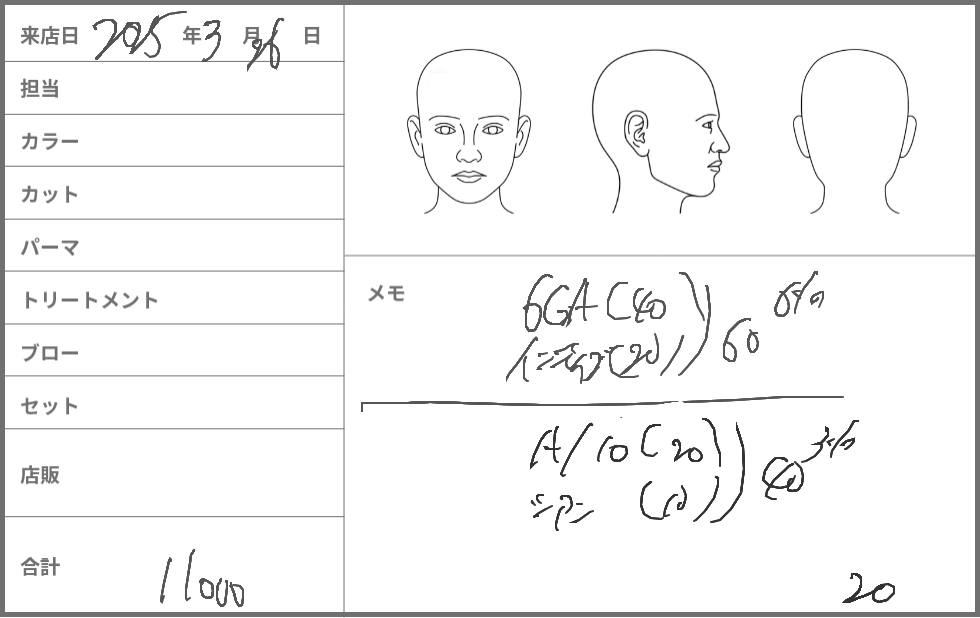 来店日 2025 年 3 月 26 日
担当
カラー
カット
パーマ
トリートメント
ブロー
セット
店販
合計 11000
メモ
6GA (40) 60 6%
(20)
A/10 (20) 40 3%
シアン (10)
20